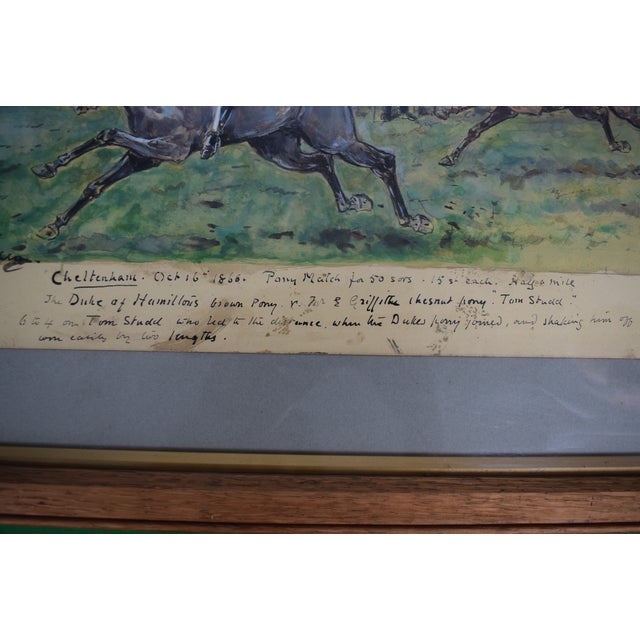 Cheltenham. Oct 16th 1866. Pony Match for 50 sovs. 15 st each. Half a mile
The Duke of Hamilton's brown Pony. v. Mr E Griffiths chesnut pony "Tom Studd."
6 to 4 on Tom Studd who led to the distance, when the Dukes pony joined, and shaking him off
won easily by two lengths.